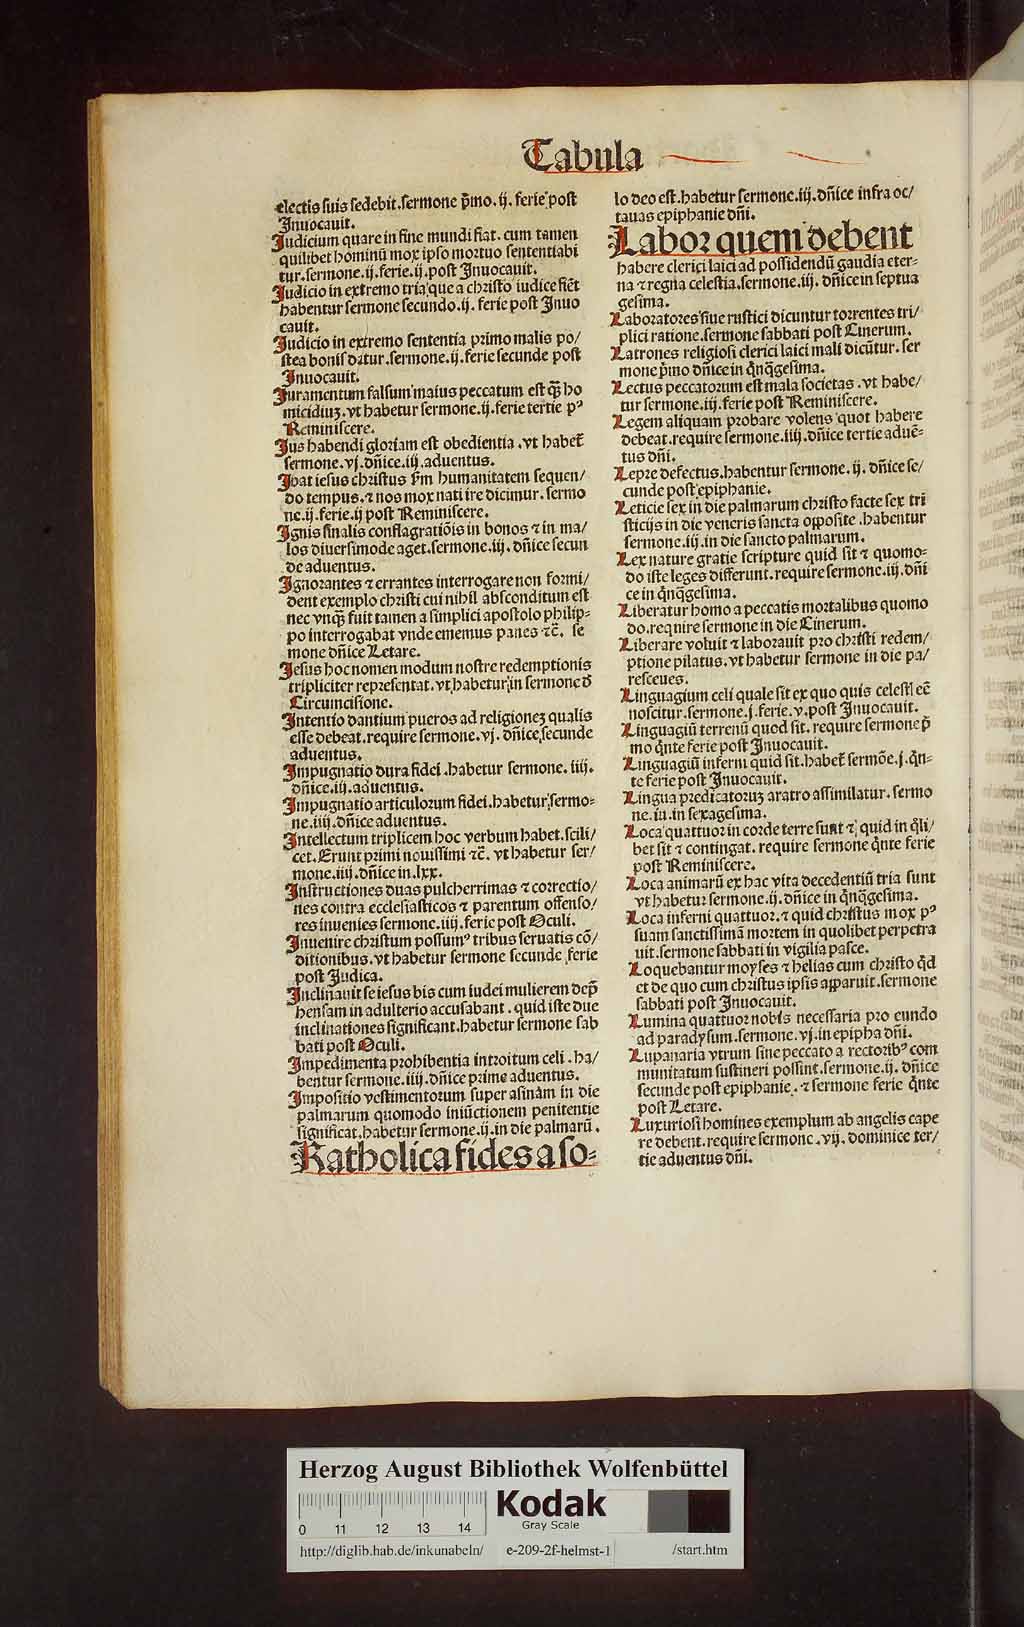 Tabula
electis suis sedebit.sermone p̄mo.ij.ferie post
Inuocauit.
Iudicium quare in fine mundi fiat.cum tamen
quilibet hominū mox ipso mortuo sententiabi
tur.sermone.ij.ferie.ij.post Inuocauit.
Iudicio in extremo tria que a christo iudice fiēt
habentur sermone secundo.ij. ferie post Inuo
cauit.
Iudicio in extremo sententia primo malis po/
stea bonis datur.sermone.ij.ferie secunde post
Inuocauit.
Iuramentum falsum maius peccatum est q̄ȝ ho
micidiuȝ.vt habetur sermone.ij.ferie tertie pꝰ
Reminiscere.
Ius habendi gloriam est obedientia .vt habet̄
sermone.vj.dn̄ice.iij.aduentus.
Ibat iesus christus ẜm humanitatem sequen/
do tempus.⁊ nos mox nati ire dicimur.sermo
ne.ij.ferie.ij post Reminiscere.
Ignis finalis conflagratiōis in bonos ⁊ in ma/
los diuersimode aget.sermone.iij. dn̄ice secun
de aduentus.
Ignorantes ⁊ errantes interrogare non formi/
dent exemplo christi cui nihil absconditum est
nec vnq̄ȝ fuit tamen a simplici apostolo philip=
po interrogabat vnde ememus panes ⁊c̄. se
mone dn̄ice Letare.
Iesus hoc nomen modum nostre redemptionis
tripliciter representat.vt habetur in sermone d̄
Circumcisione.
Intentio dantium pueros ad religioneȝ qualis
esse debeat.require sermone.vj. dn̄ice secunde
aduentus.
Impugnatio dura fidei .habetur sermone. iiij.
dn̄ice.iij.aduentus.
Impugnatio articulorum fidei.habetur sermo=
ne.iiij.dn̄ice aduentus.
Intellectum triplicem hoc verbum habet.scili/
cet.Erunt primi nouissimi ⁊c̄. vt habetur ser/
mone.iiij.dn̄ice in.lxx.
Instructiones duas pulcherrimas ⁊ correctio/
nes contra ecclesiasticos ⁊ parentum offenso/
res inuenies sermone.iiij.ferie post Oculi.
Inuenire christum possumꝰ tribus seruatis cō/
ditionibus.vt habetur sermone secunde ferie
post Iudica.
Inclinauit se iesus bis cum iudei mulierem dep̄
hensam in adulterio accusabant . quid iste due
inclinationes significant.habetur sermone sab
bati post Oculi.
Impedimenta prohibentia introitum celi .ha/
bentur sermone.iiij.dn̄ice prime aduentus.
Impositio vestimentorum super asinam in die
palmarum quomodo iniūctionem penitentie
significat.habetur sermone.ij.in die palmarū .
Katholica fides a so=
lo deo est.habetur sermone.iij.dn̄ice infra oc/
tauas epiphanie dn̄i.
Labor quem debent
habere clerici laici ad possidendū gaudia eter=
na ⁊ regna celestia.sermone.iij. dn̄ice in septua
gesima.
Laboratores siue rustici dicuntur torrentes tri/
plici ratione.sermone sabbati post Cinerum.
Latrones religiosi clerici laici mali dicūtur. ser
mone p̄mo dn̄ice in q̄nq̄gesima.
Lectus peccatorum est mala societas .vt habe/
tur sermone.iij.ferie post Reminiscere.
Legem aliquam probare volens quot habere
debeat.require sermone.iiij.dn̄ice tertie aduē=
tus dn̄i.
Lepre defectus.habentur sermone.ij. dn̄ice se/
cunde post epiphanie.
Leticie sex in die palmarum christo facte sex tri
sticijs in die veneris sancta opposite.habentur
sermone.iij.in die sancto palmarum.
Lex nature gratie scripture quid sit ⁊ quomo=
do iste leges differunt.require sermone.iij.dn̄i
ce in q̄nq̄gesima.
Liberatur homo a peccatis mortalibus quomo
do.require sermone in die Cinerum.
Liberare voluit ⁊ laborauit pro christi redem/
ptione pilatus.vt habetur sermone in die pa/
rasceues.
Linguagium celi quale sit ex quo quis celest̄ eē
noscitur.sermone.j.ferie.v.post Inuocauit.
Linguagiū terrenū quod sit. require sermone p̄
mo q̄nte ferie post Inuocauit.
Linguagiū inferni quid sit.habet̄ sermōe.j.q̄n=
te ferie post Inuocauit.
Lingua predicatoruȝ aratro assimilatur. sermo
ne.iij.in sexagesima.
Loca quattuor in corde terre sunt ⁊ quid in q̄li/
bet sit ⁊ contingat. require sermone q̄nte ferie
post Reminiscere.
Loca animarū ex hac vita decedentiū tria sunt
vt habetur sermone.ij.dn̄ice in q̄nq̄gesima.
Loca inferni quattuor.⁊ quid christus mox pꝰ
suam sanctissimā mortem in quolibet perpetra
uit.sermone sabbati in vigilia pasce.
Loquebantur moyses ⁊ helias cum christo q̄d
et de quo cum christus ipsis apparuit.sermone
sabbati post Inuocauit.
Lumina quattuor nobis necessaria pro eundo
ad paradysum.sermone.vj.in epipha dn̄i.
Lupanaria vtrum sine peccato a rectoribꝰ com
munitatum sustineri possint.sermone.ij. dn̄ice
secunde post epiphanie.⁊ sermone ferie q̄nte
post Letare.
Luxuriosi homines exemplum ab angelis cape
re debent.require sermone .vij. dominice ter/
tie aduentus dn̄i.
Herzog August Bibliothek Wolfenbüttel
Kodak
Gray Scale
0 11 12 13 14
http://diglib.hab.de/inkunabeln/ e-209-2f-helmst-1 /start.htm